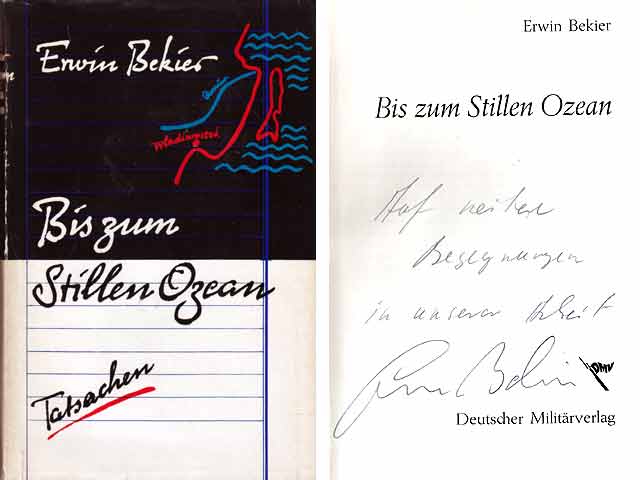 Erwin Bekier
Amur
Wladiwostok
Bis zum
Stillen Ozean
Tatsachen
Erwin Bekier
Bis zum Stillen Ozean
Auf weitere
Begegnungen
in unserer Arbeit
Erwin Bekier
DMV
Deutscher Militärverlag